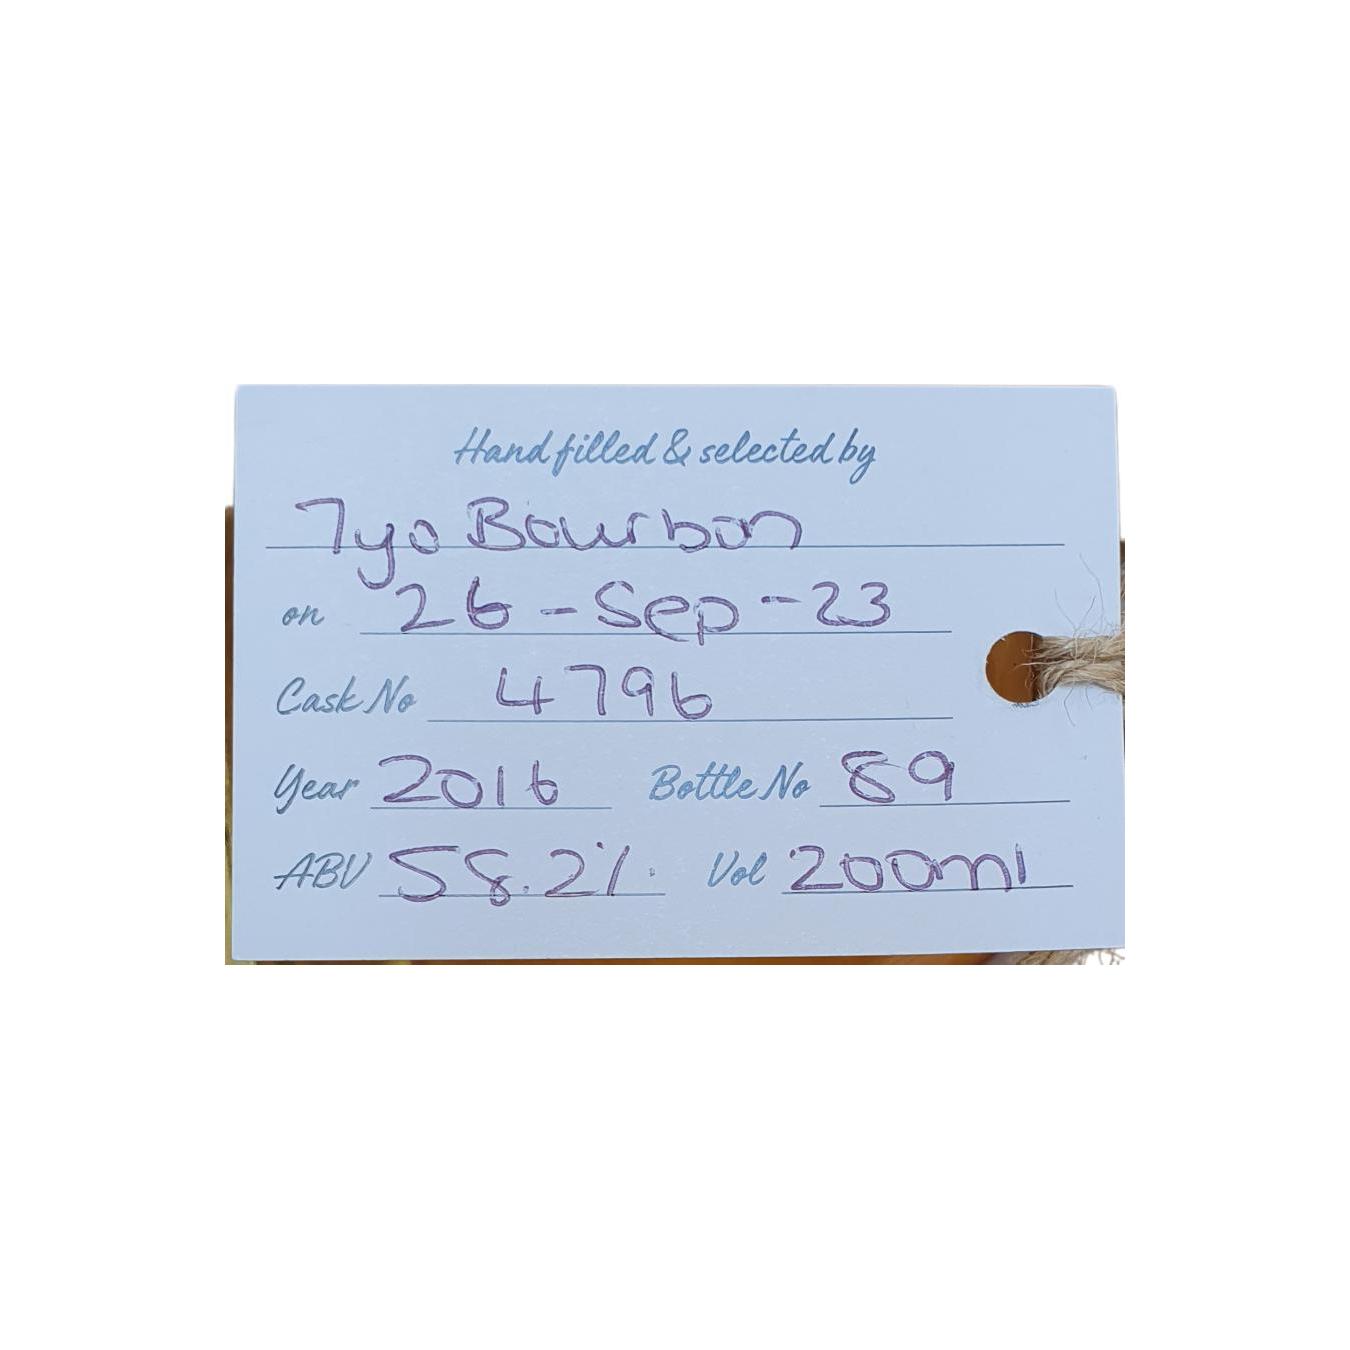 Hand filled & selected by
7yo Bourbon
on 26-Sep-23
Cask No 4796
Year 2016 Bottle No 89
ABV 58.2% Vol 200ml